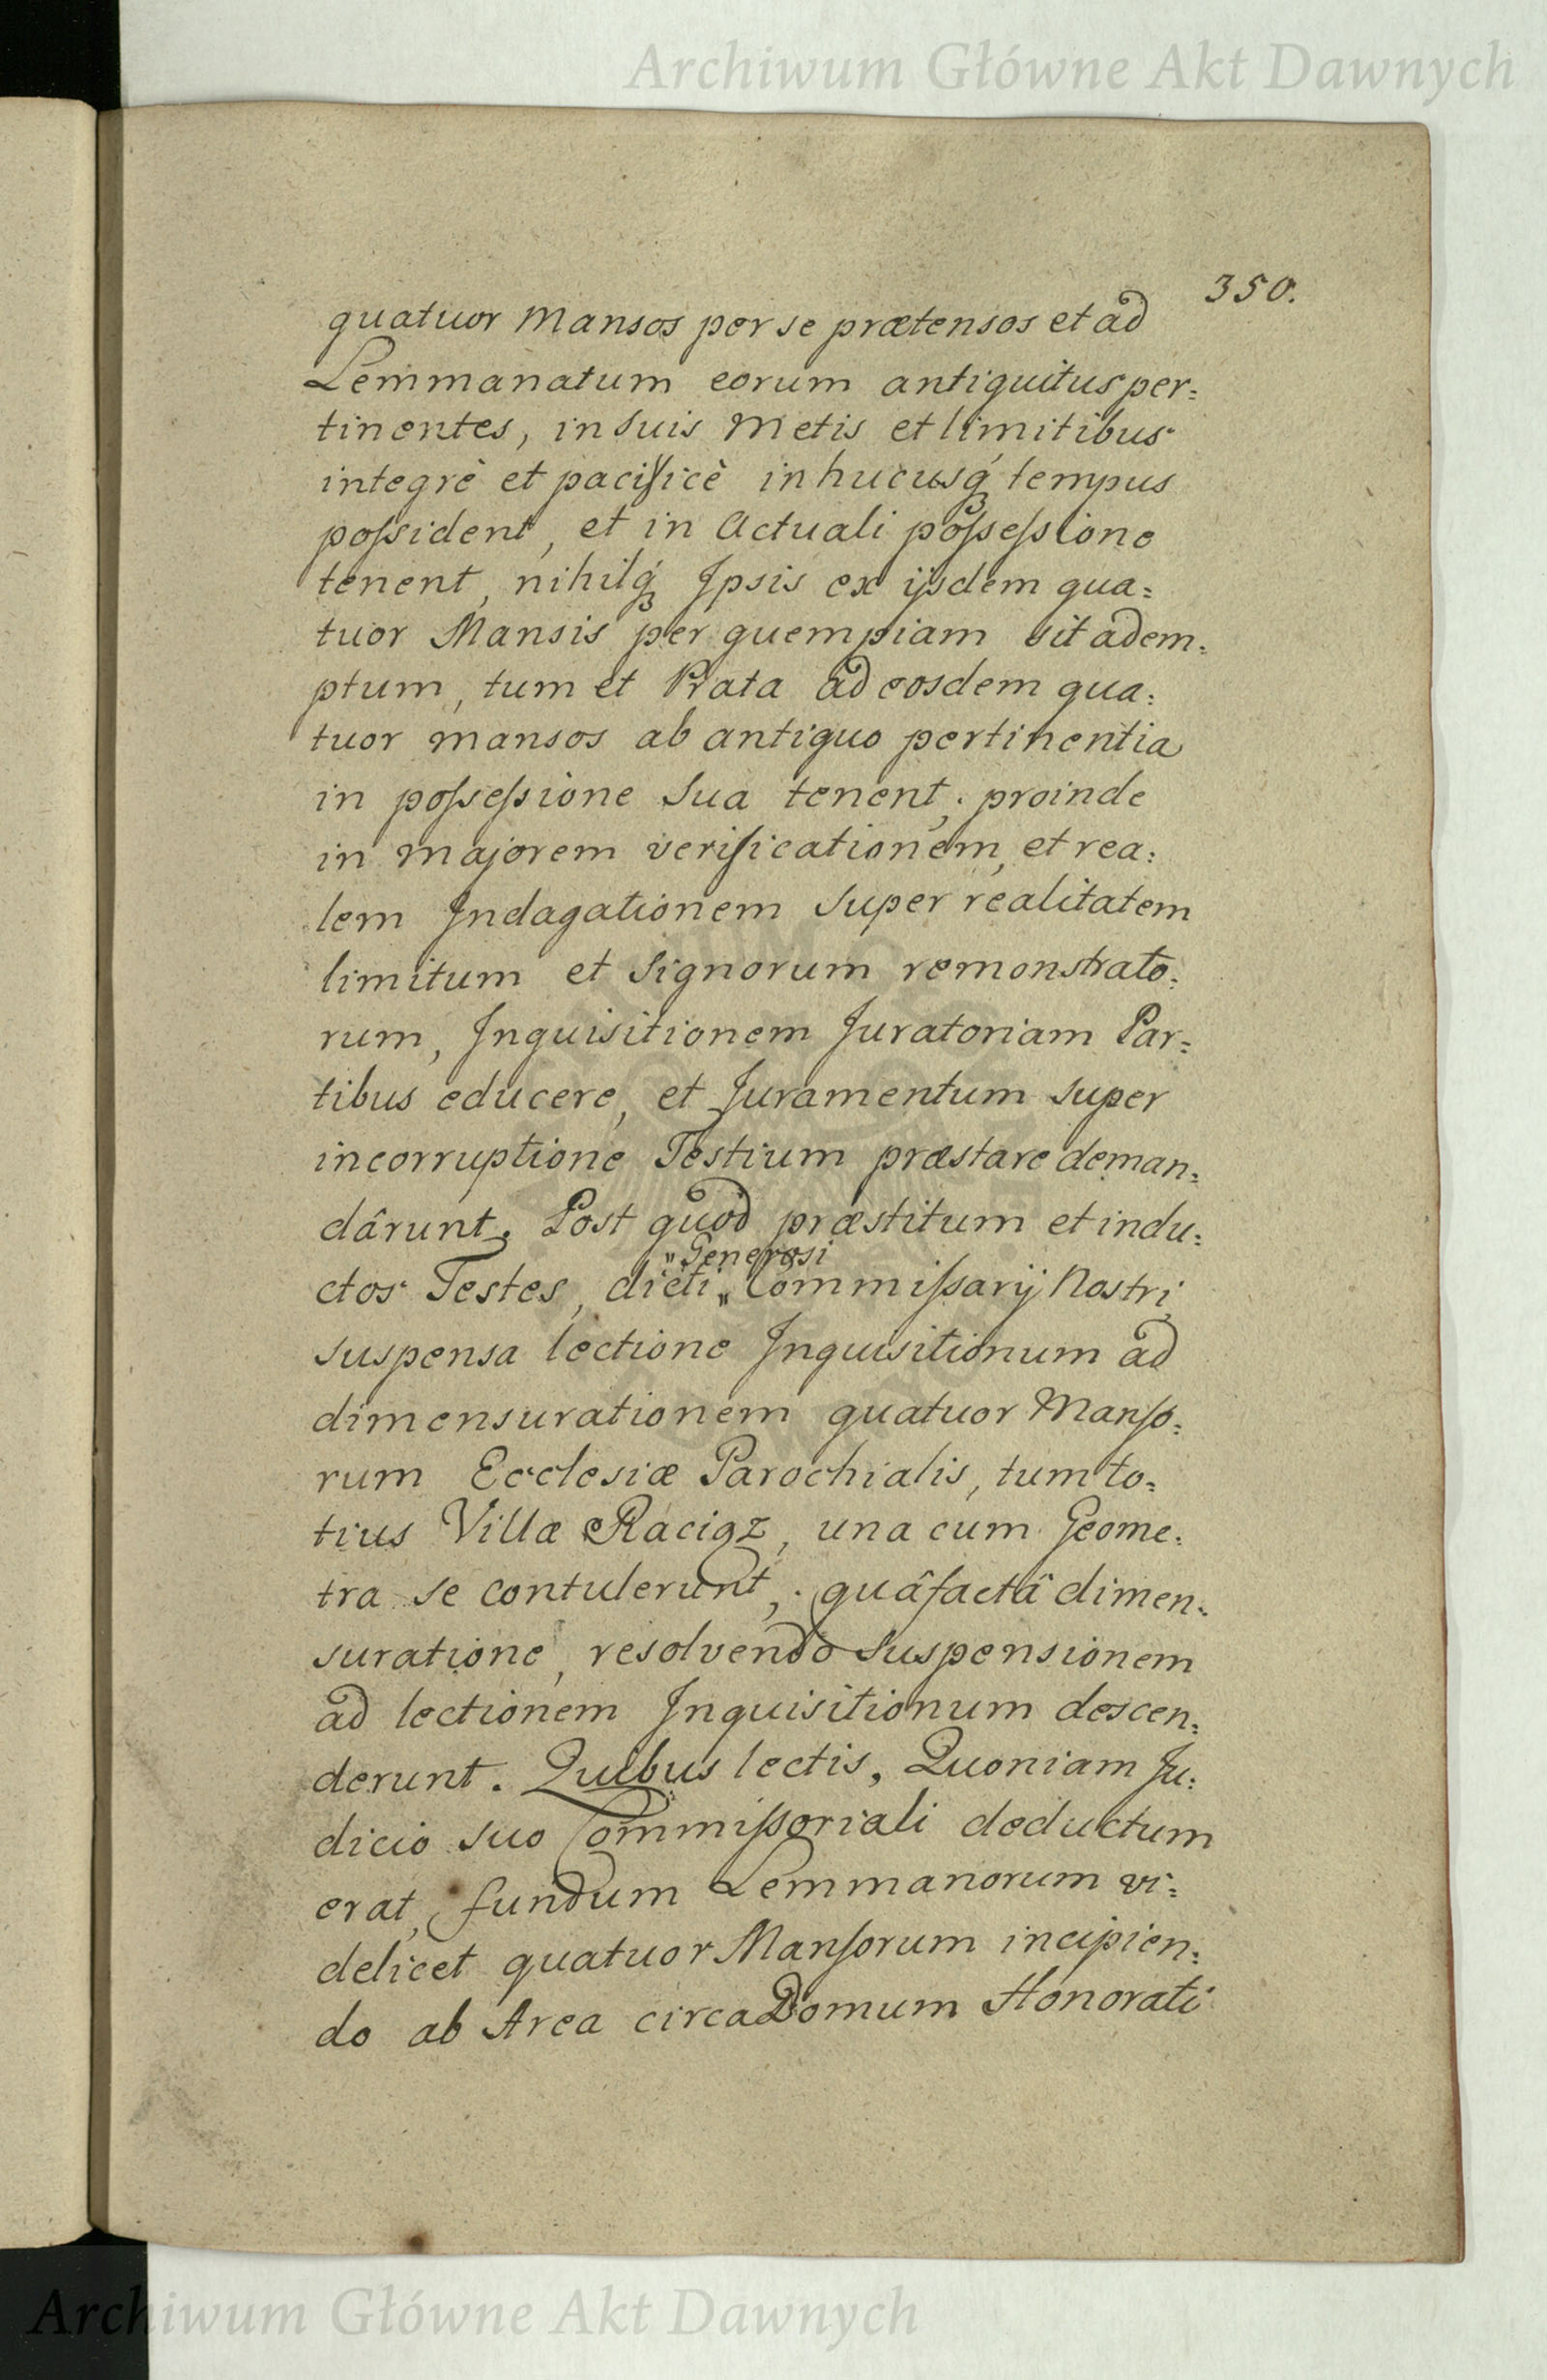 Archiwum Główne Akt Dawnych
350.
quatuor Mansos per se prætensos et ad
Lemmanatum eorum antiquitus per=
tinentes, in suis Metis et limitibus
integrè et pacificè in hucusq́ tempus
poſsident, et in Actuali poſseſsione
tenent, nihilq́ Ipsis ex ijsdem qua=
tuor Mansis per quempiam sit adem=
ptum, tum et Prata ad eosdem qua=
tuor mansos ab antiquo pertinentia
in poſseſsione sua tenent; proinde
in majorem verificationem, et rea=
lem Indagationem super realitatem
limitum et signorum remonstrato=
rum, Inquisitionem Juratoriam Par=
tibus educere, et Juramentum super
incorruptione Testium præstare deman=
dârunt. Post quod præstitum et indu=
"Generosi
ctos Testes, dicti „ Commiſsarij Nostri
suspensa lectione Inquisitionum ad
dimensurationem quatuor Manſo=
rum Ecclesiæ Parochialis, tum to=
tius Villæ Raciąz, una cum Geome=
tra se contulerunt; quâ factâ dimen=
suratione, resolvendo suspensionem
ad lectionem Inquisitionum descen=
derunt. Quibus lectis, Quoniam Ju=
dicio suo Commiſsoriali deductum
erat, fundum Lemmanorum vi=
delicet quatuor Manſorum incipien=
do ab Area circa Domum Honorati
Archiwum Główne Akt Dawnych